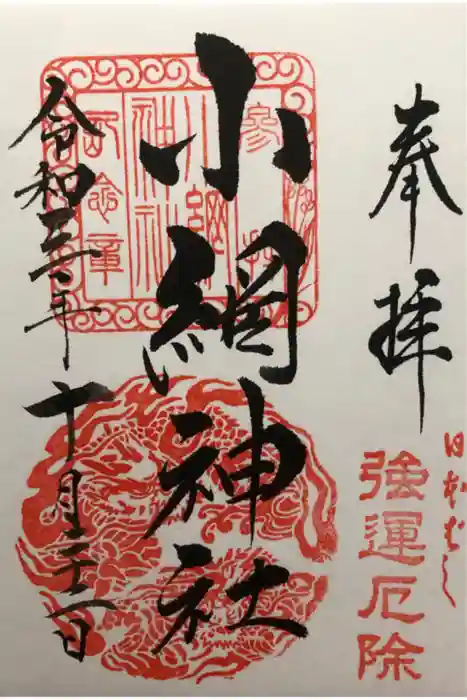 奉拝
日本ばし
強運厄除
参拝
小網神社
記念章
小網神社
令和三年十月二十一日